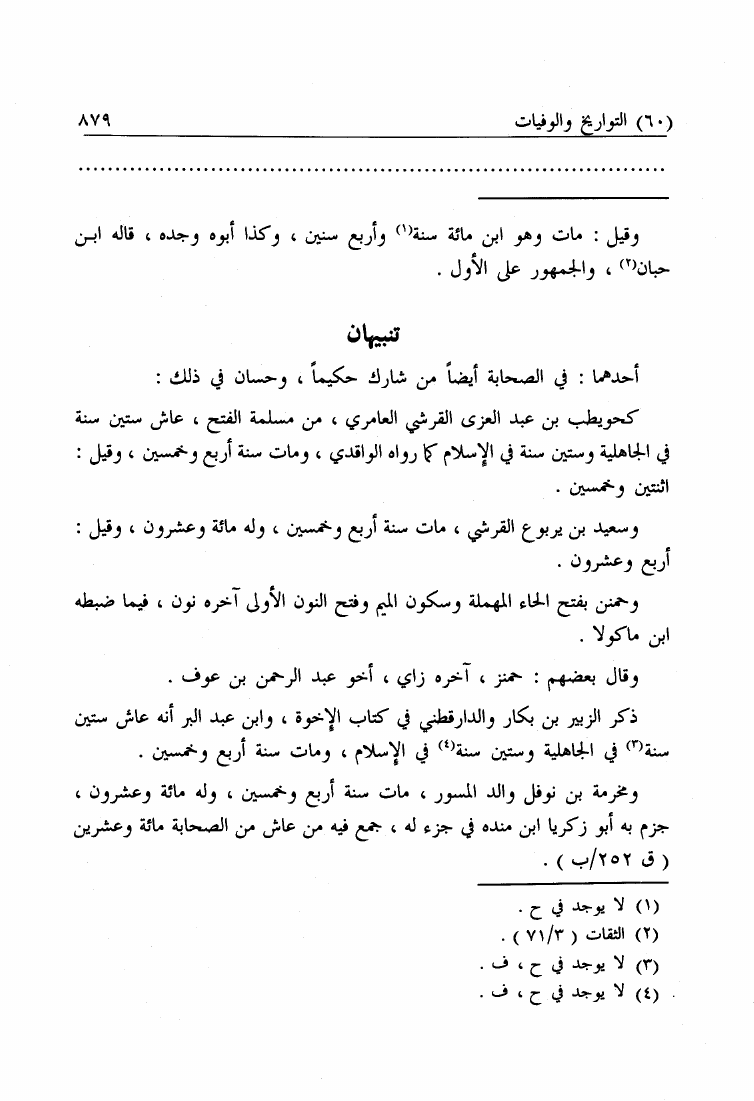 (٦٠) التواريخ والوفيات ٨٧٩
وقيل : مات وهو ابن مائة سنة(١) وأربع سنين ، وكذا أبوه وجده ، قاله ابن
حبان(٢) ، والجمهور على الأول .
تنبيهان
أحدهما : في الصحابة أيضاً من شارك حكيماً ، وحسان في ذلك :
كحويطب بن عبد العزى القرشي العامري ، من مسلمة الفتح ، عاش ستين سنة
في الجاهلية وستين سنة في الإسلام كما رواه الواقدي ، ومات سنة أربع وخمسين ، وقيل :
اثنتين وخمسين .
وسعيد بن يربوع القرشي ، مات سنة أربع وخمسين ، وله مائة وعشرون ، وقيل :
أربع وعشرون .
وحمنن بفتح الحاء المهملة وسكون الميم وفتح النون الأولى آخره نون ، فيما ضبطه
ابن ماكولا .
وقال بعضهم : حمنز ، آخره زاي ، أخو عبد الرحمن بن عوف .
ذكر الزبير بن بكار والدارقطني في كتاب الإخوة ، وابن عبد البر أنه عاش ستين
سنة(٣) في الجاهلية وستين سنة(٤) في الإسلام ، ومات سنة أربع وخمسين .
ومخرمة بن نوفل والد المسور ، مات سنة أربع وخمسين ، وله مائة وعشرون ،
جزم به أبو زكريا ابن منده في جزء له ، جمع فيه من عاش من الصحابة مائة وعشرين
( ق ٢٥٢/ب ) .
(١) لا يوجد في ح .
(٢) الثقات ( ٧١/٣ ) .
(٣) لا يوجد في ح ، ف .
(٤) لا يوجد في ح ، ف .